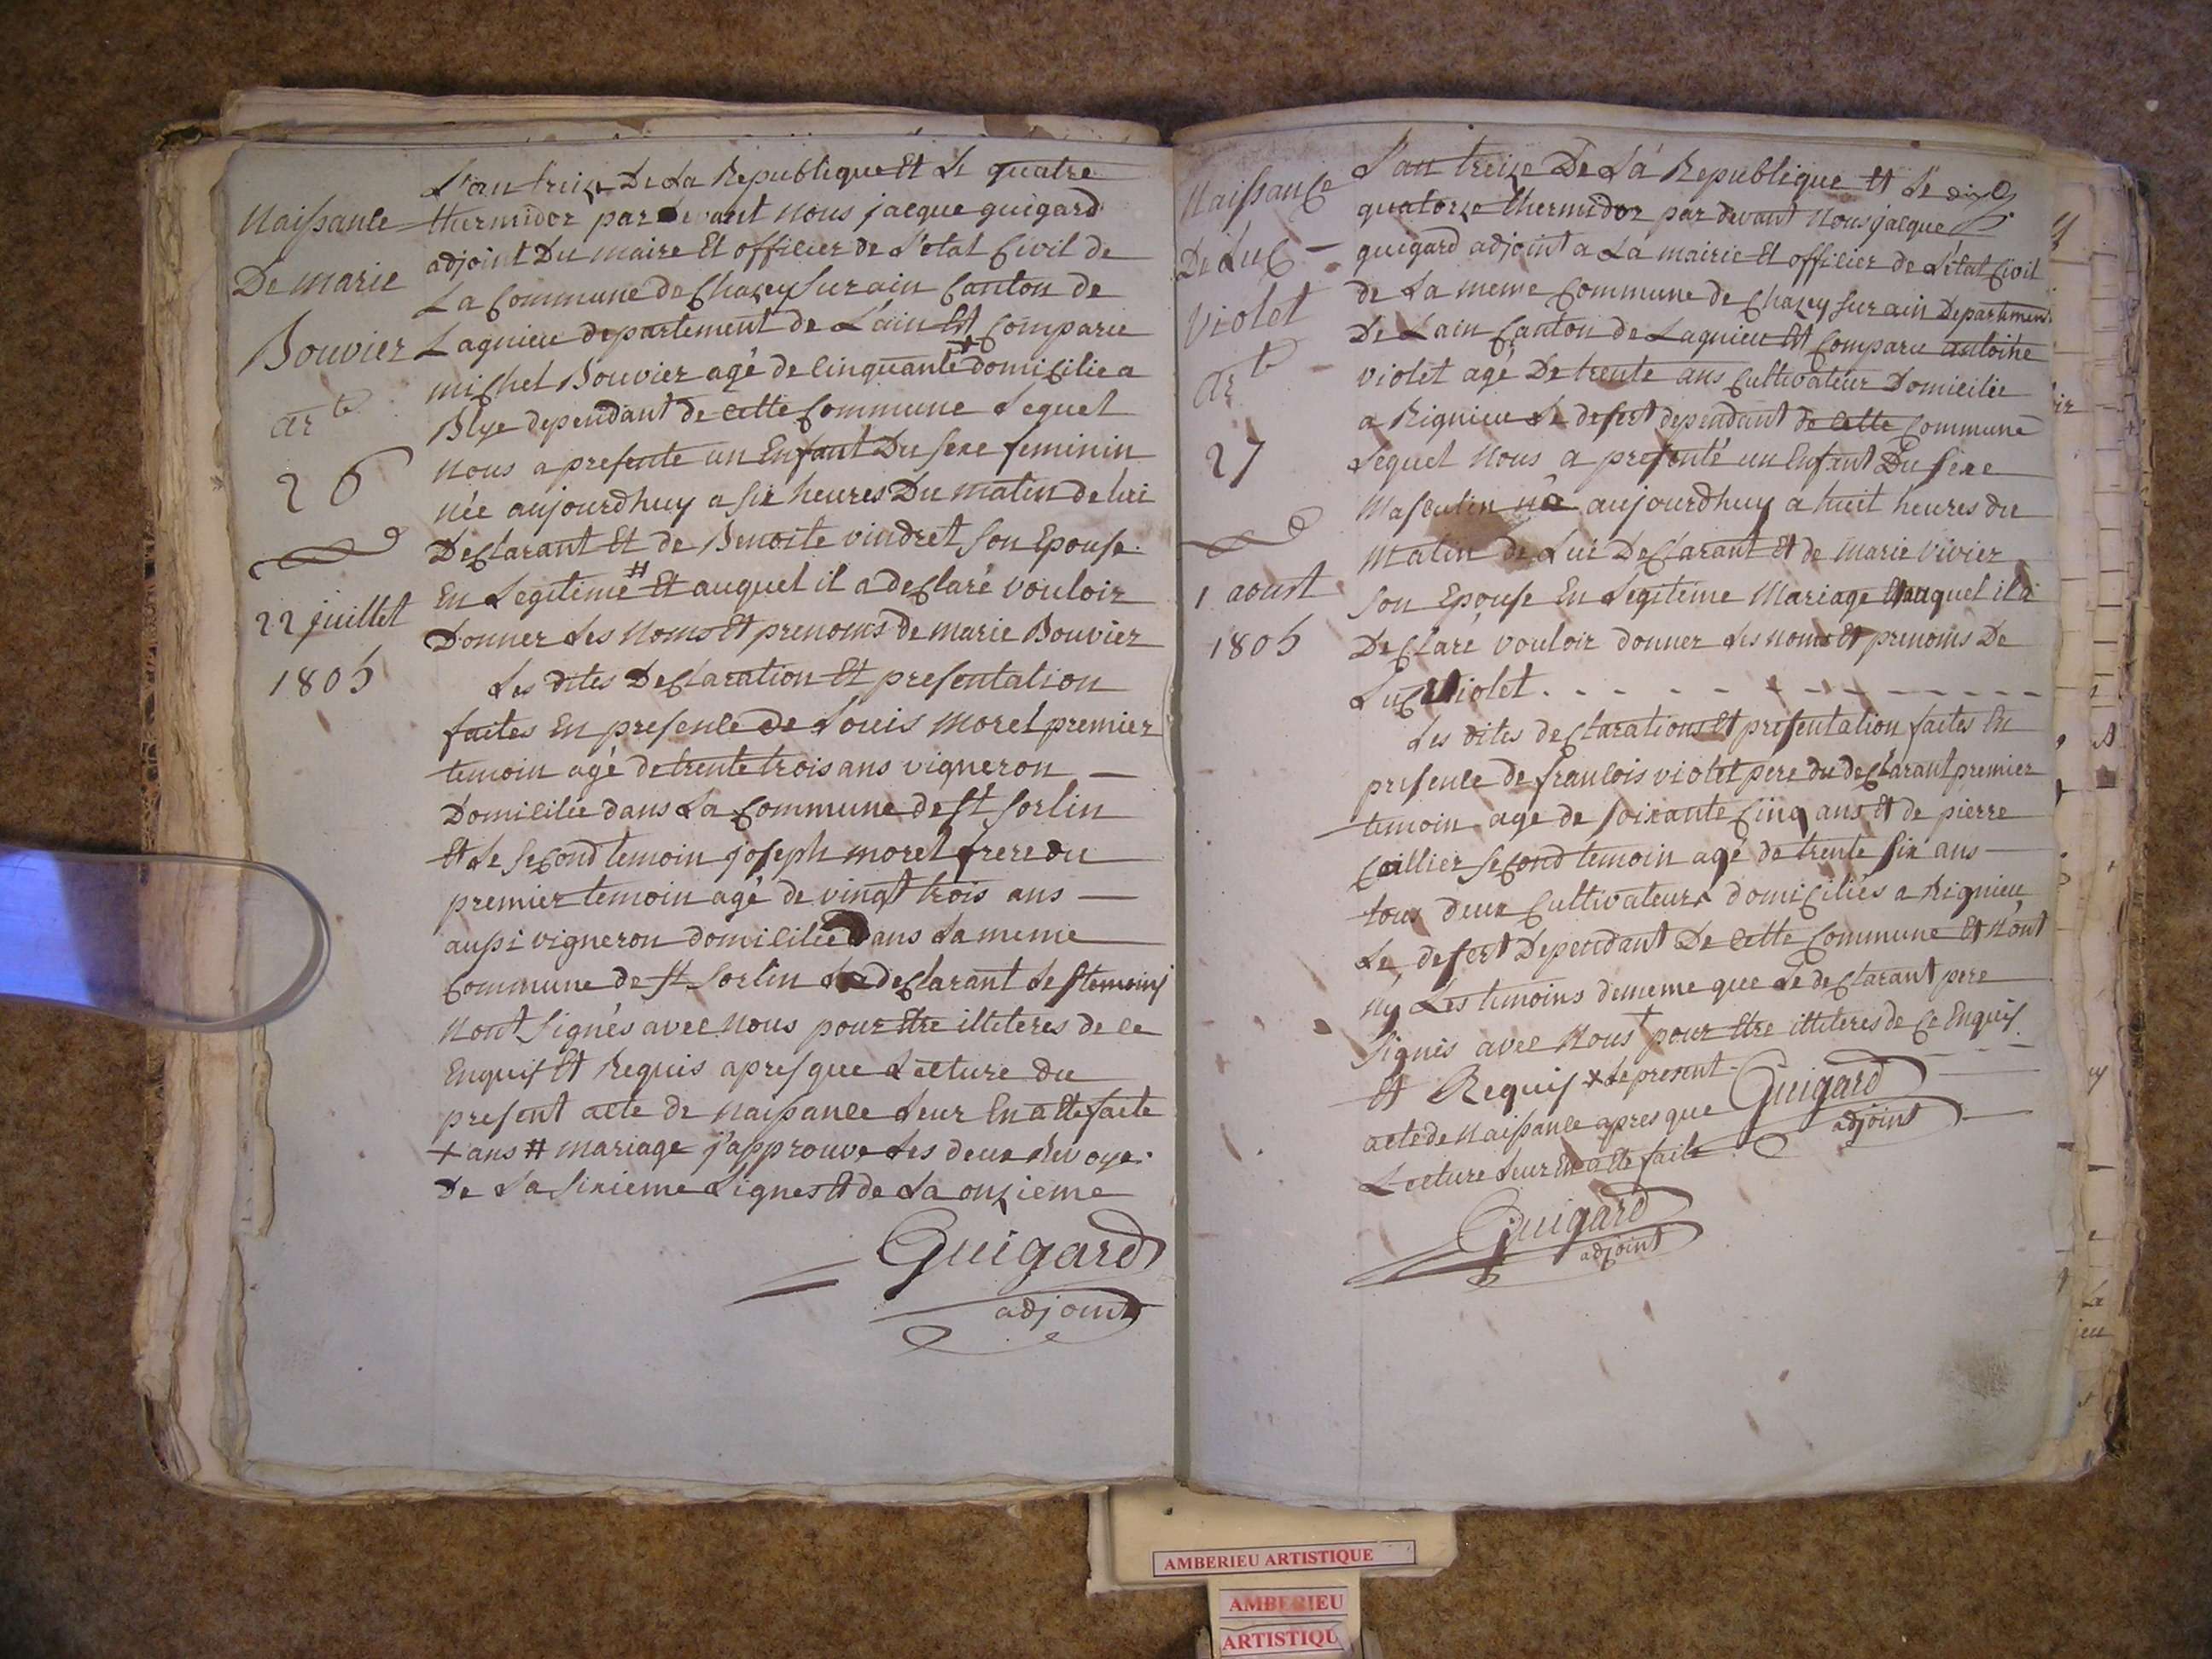 Naissance
De marie
Bouvier
arte
26
22 juillet
1805
L'an treize De La Republique Et Le quatre
thermidor par devant nous jacque guigard
adjoint Du maire Et officier de L'etat Civil de
La Commune de Chazey Sur ain Canton de
Lagnieu departement de L'ain Est Comparu
michel Bouvier agé de cinquante + domicilié a
Blye dependant de cette Commune Lequel
nous a presenté un Enfant Du sexe feminin
née aujourdhuy a six heures Du matin de lui
Declarant Et de Benoite vindret son Epouse
En Legitime # Et auquel il a declaré vouloir
Donner Les Noms Et prenoms de marie Bouvier
Les dites Declaration Et presentation
faites En presence de Louis morel premier
temoin agé de trente trois ans vigneron —
Domicilié dans La Commune de St Sorlin
Et Le second temoin joseph morel frere du
premier temoin agé de vingt trois ans —
aussi vigneron domicilié Dans La meme
Commune de St Sorlin Le declarant Les temoins
Nont signés avec Nous pour Etre illiteres de ce
Enquis Et Requis apres que Lecture du
present acte de Naissance Leur En a Ete faite
+ ans # mariage j'approuve Les deux Renvoye
De La sixieme Lignes Et de La onzieme
Guigard
adjoint
Naissance
De Luc
Violet
arte
27
1 aoust
1805
L'an treize De La Republique Et Le
quatorze thermidor par devant Nous jacque
guigard adjoint a La mairie Et officier de L'etat Civil
de La meme Commune de Chazey sur ain Departement
De Lain Canton de Lagnieu Est Comparu antoine
violet agé De trente ans Cultivateur Domicilié
a Rignieu Le desert dependant de cette Commune
Lequel Nous a presenté un Enfant Du sexe
Masculin né aujourdhuy a huit heures du
Matin de Lui Declarant Et de marie vivier
son Epouse En Legitime Mariage Et auquel il a
Declaré vouloir donner Les noms Et prenoms De
Luc Violet . - - - - - - - - - - - -
Les dites declarations Et presentation faites En
presence de francois violet pere du declarant premier
temoin age de soixante Cinq ans Et de pierre
Caillier second temoin agé de trente six ans —
tous deux Cultivateurs domiciliés a Rignieu
Le desert Dependant De Cette Commune Et N'ont
ny Les temoins dememe que Le declarant pere
signés avec Nous + pour Etre illiteres de Ce Enquis
Et Requis + Le present
acte de Naissance apres que
Lecture Leur En a Ete faite
Guigard
adjoint
Guigard
adjoint
AMBERIEU ARTISTIQUE
AMBERIEU
ARTISTIQU